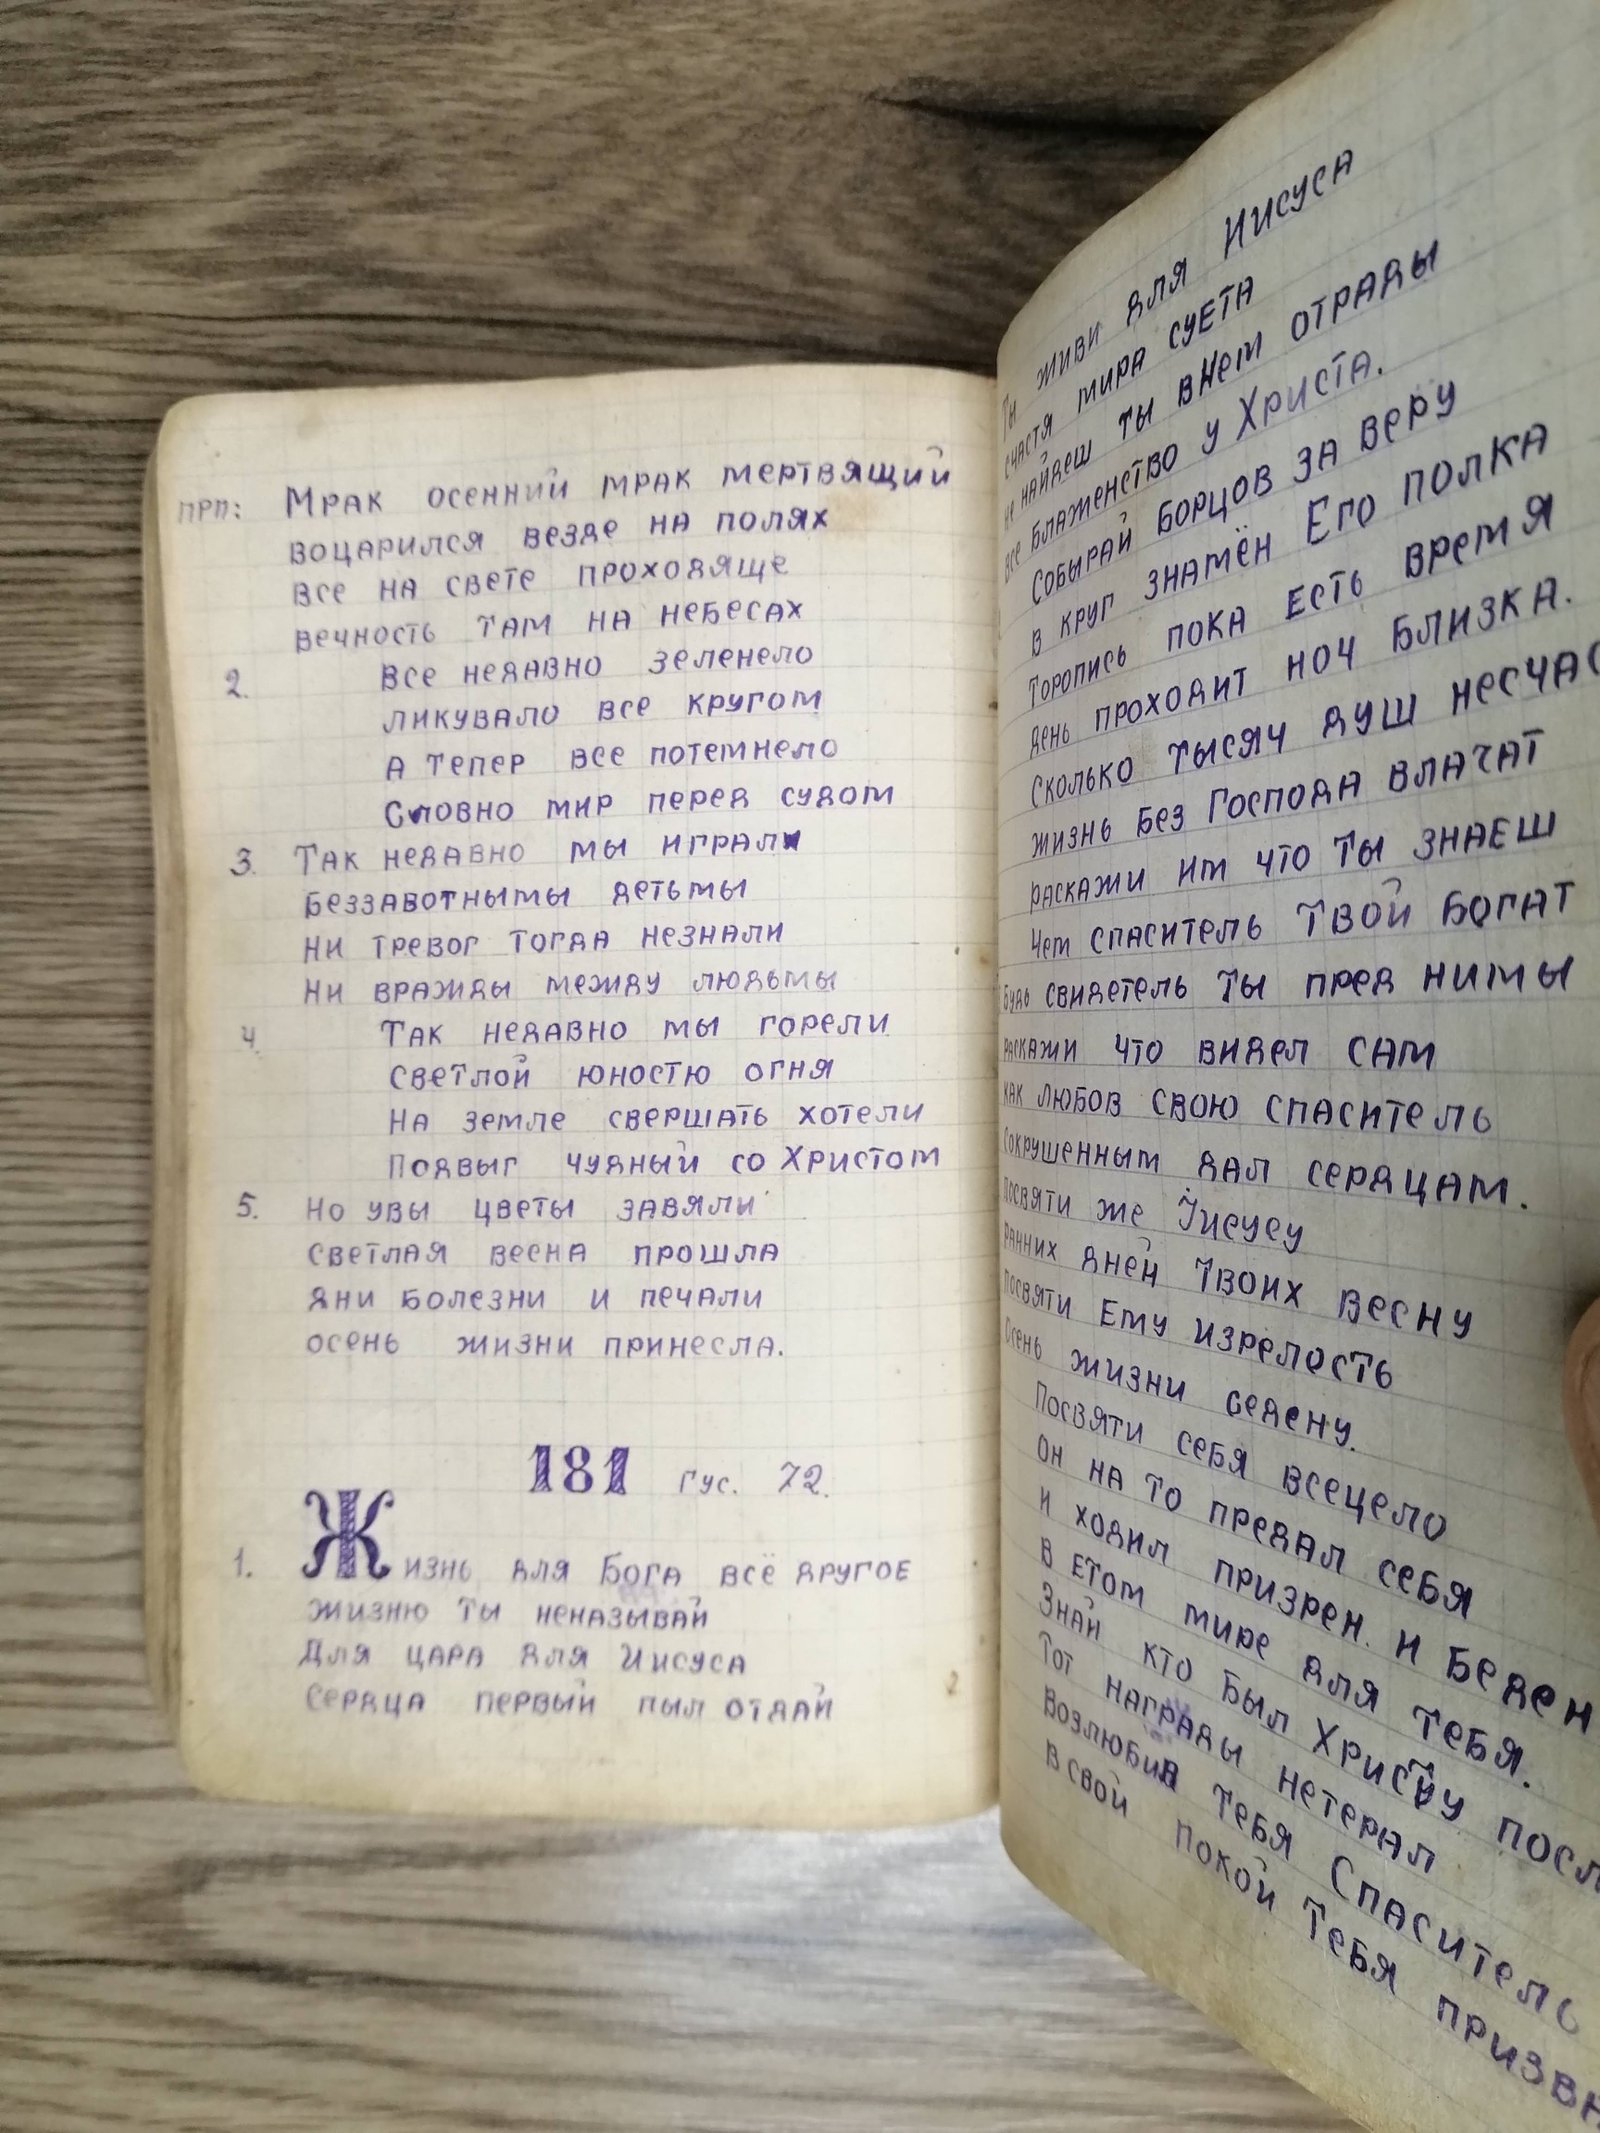 прп: Мрак осенний мрак мертвящий
воцарился везде на полях
все на свете проходяще
вечность там на небесах
2. Все недавно зеленело
ликувало все кругом
А тепер все потемнело
Словно мир перед судом
3. Так недавно мы играли
Беззавотнымы детьмы
Ни тревог тогда незнали
Ни вражды между людьмы
4. Так недавно мы горели
Светлой юностю огня
На земле свершать хотели
Подвыг чудный со Христом
5. Но увы цветы завяли
Светлая весна прошла
Дни болезни и печали
осень жизни принесла.
181 Гус. 72.
1. Жизнь для Бога всё другое
жизню ты неназывай
Для цара для Иисуса
Сердца первый пыл отдай
Ты живи для Иисуса
счастя мира суета
не найдеш ты внем отрады
все блаженство у Христа.
Собырай борцов за веру
в круг знамён Его полка
Торопись пока Есть время
День проходит ноч близка.
Сколько тысяч душ несчас
жизнь Без Господа влачат
раскажи им что ты знаеш
Чем спаситель Твой богат
Будь свидетель ты пред нимы
раскажи что видел сам
как любов свою спаситель
Сокрушенным дал сердцам.
Посвяти же Іисусу
ранних дней Твоих весну
посвяти Ему изрелость
Осень жизни седену.
Посвяти себя всецело
Он на то предал себя
и ходил призрен. и беден
в етом мире для тебя.
Знай кто был Христу посл
Тот награды нетерал
Возлюбив тебя Спаситель
в свой покой тебя призва